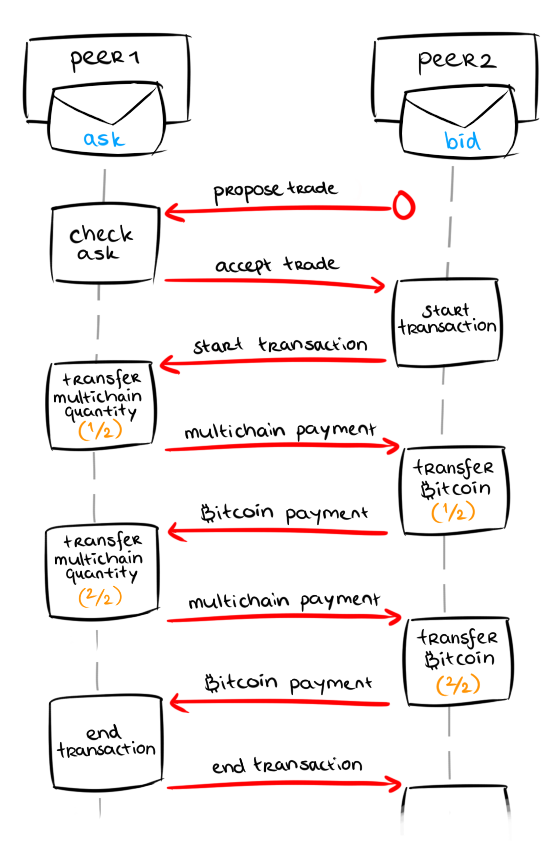 PEER1
PEER2
ask
bid
propose trade
check
ask
accept trade
start
transaction
start transaction
transfer
multichain
quantity
(1/2)
multichain payment
transfer
₿itcoin
(1/2)
₿itcoin payment
transfer
multichain
quantity
(2/2)
multichain payment
transfer
₿itcoin
(2/2)
₿itcoin payment
end
transaction
end transaction